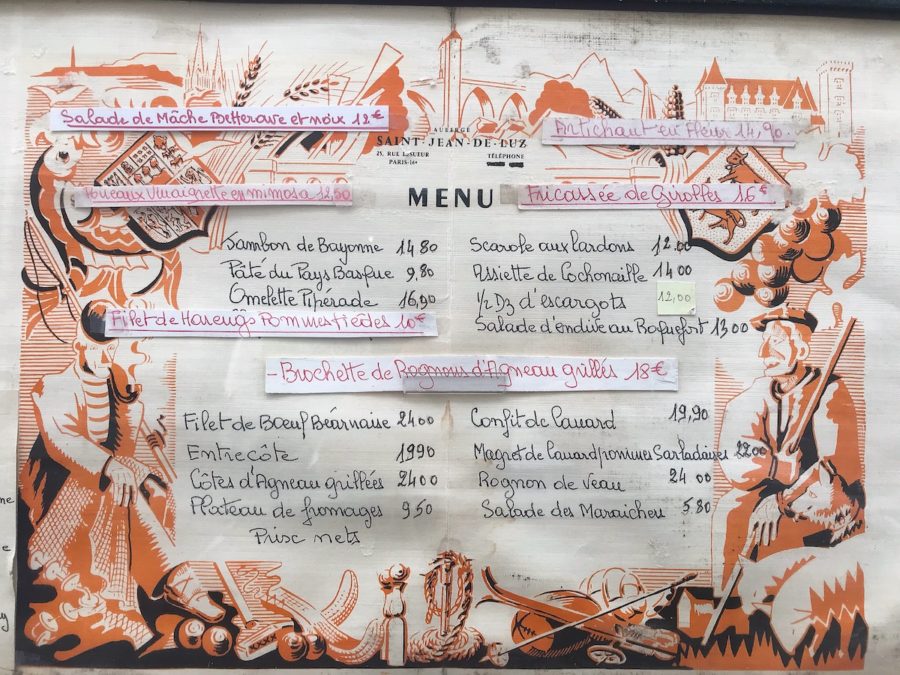 Salade de Mâche Betterave et noix 12€
AUBERGE
SAINT-JEAN-DE-LUZ
25, RUE LESUEUR
PARIS-16e
TÉLÉPHONE
Artichaut en Fleur 14,90.
Poireaux Vinaigrette en mimosa 12,50
MENU
Fricassée de Girolles 16€
Jambon de Bayonne 14 80
Pâté du Pays Basque 9,80
Omelette Pipérade 16,90
Filet de Harengs Pommes tièdes 10€
Scarole aux lardons 12.00
Assiette de Cochonaille 14 00
½ Dz d'escargots 12,00
Salade d'endive au Roquefort 13 00
- Brochette de Rognons d'Agneau grillés 18€
Filet de Bœuf Béarnaise 24 00
Entrecôte 19 90
Côtes d'Agneau grillées 24 00
Plateau de fromages 9,50
Prix nets
Confit de Canard 19,90
Magret de Canard pommes Sarladaises 22 00
Rognon de Veau 24 00
Salade des Maraicheu 5.80